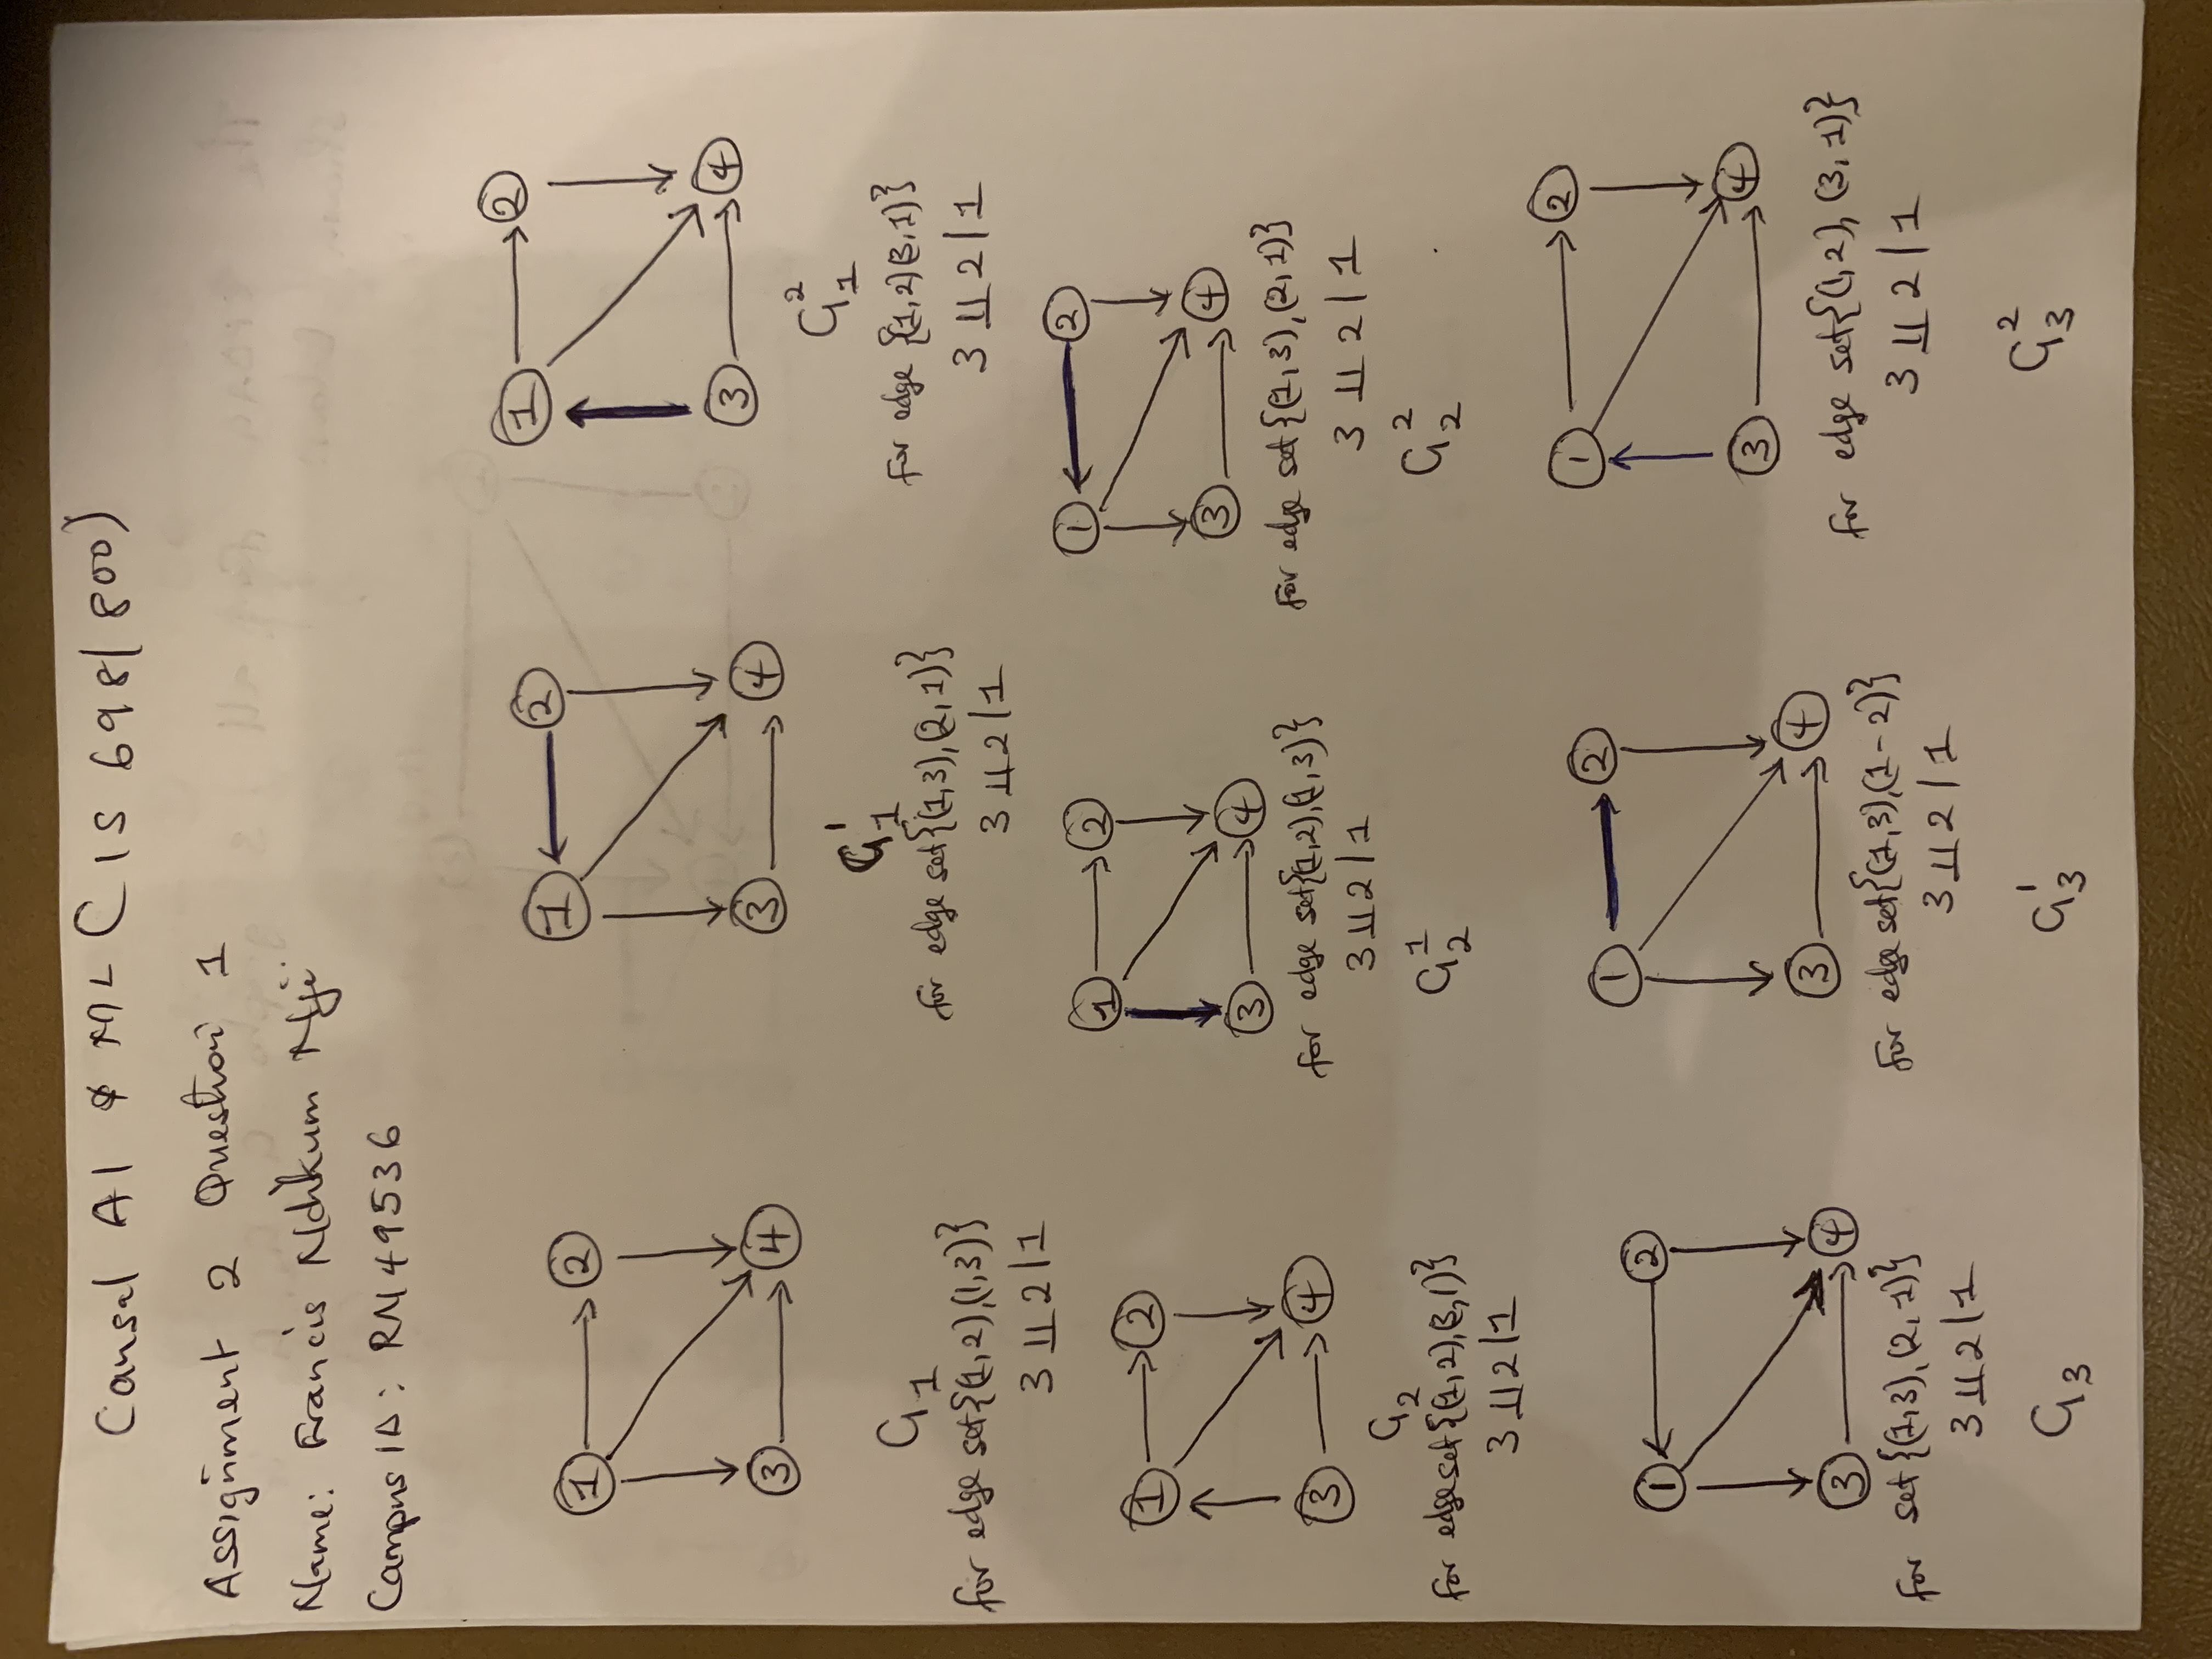 Causal AI & ML (IS 698/800)
Assignment 2 Question 1
Name: Francis Ndikum Nji
Campus ID: RN49536
1 2
3 4
G1
for edge set{(1,2),(1,3)}
3 ⫫ 2 | 1
1 2
3 4
G1^1
for edge set{(1,3),(2,1)}
3 ⫫ 2 | 1
1 2
3 4
G1^2
for edge {(1,2)(3,1)}
3 ⫫ 2 | 1
1 2
3 4
G2
for edge set{(1,2),(3,1)}
3 ⫫ 2 | 1
1 2
3 4
for edge set{(1,2),(1,3)}
3 ⫫ 2 | 1
G2^1
1 2
3 4
for edge set{(1,3),(2,1)}
3 ⫫ 2 | 1
G2^2
1 2
3 4
for set{(1,3),(2,1)}
3 ⫫ 2 | 1
G3
1 2
3 4
for edge set{(1,3),(1-2)}
3 ⫫ 2 | 1
G3^1
1 2
3 4
for edge set{(1,2), (3,1)}
3 ⫫ 2 | 1
G3^2